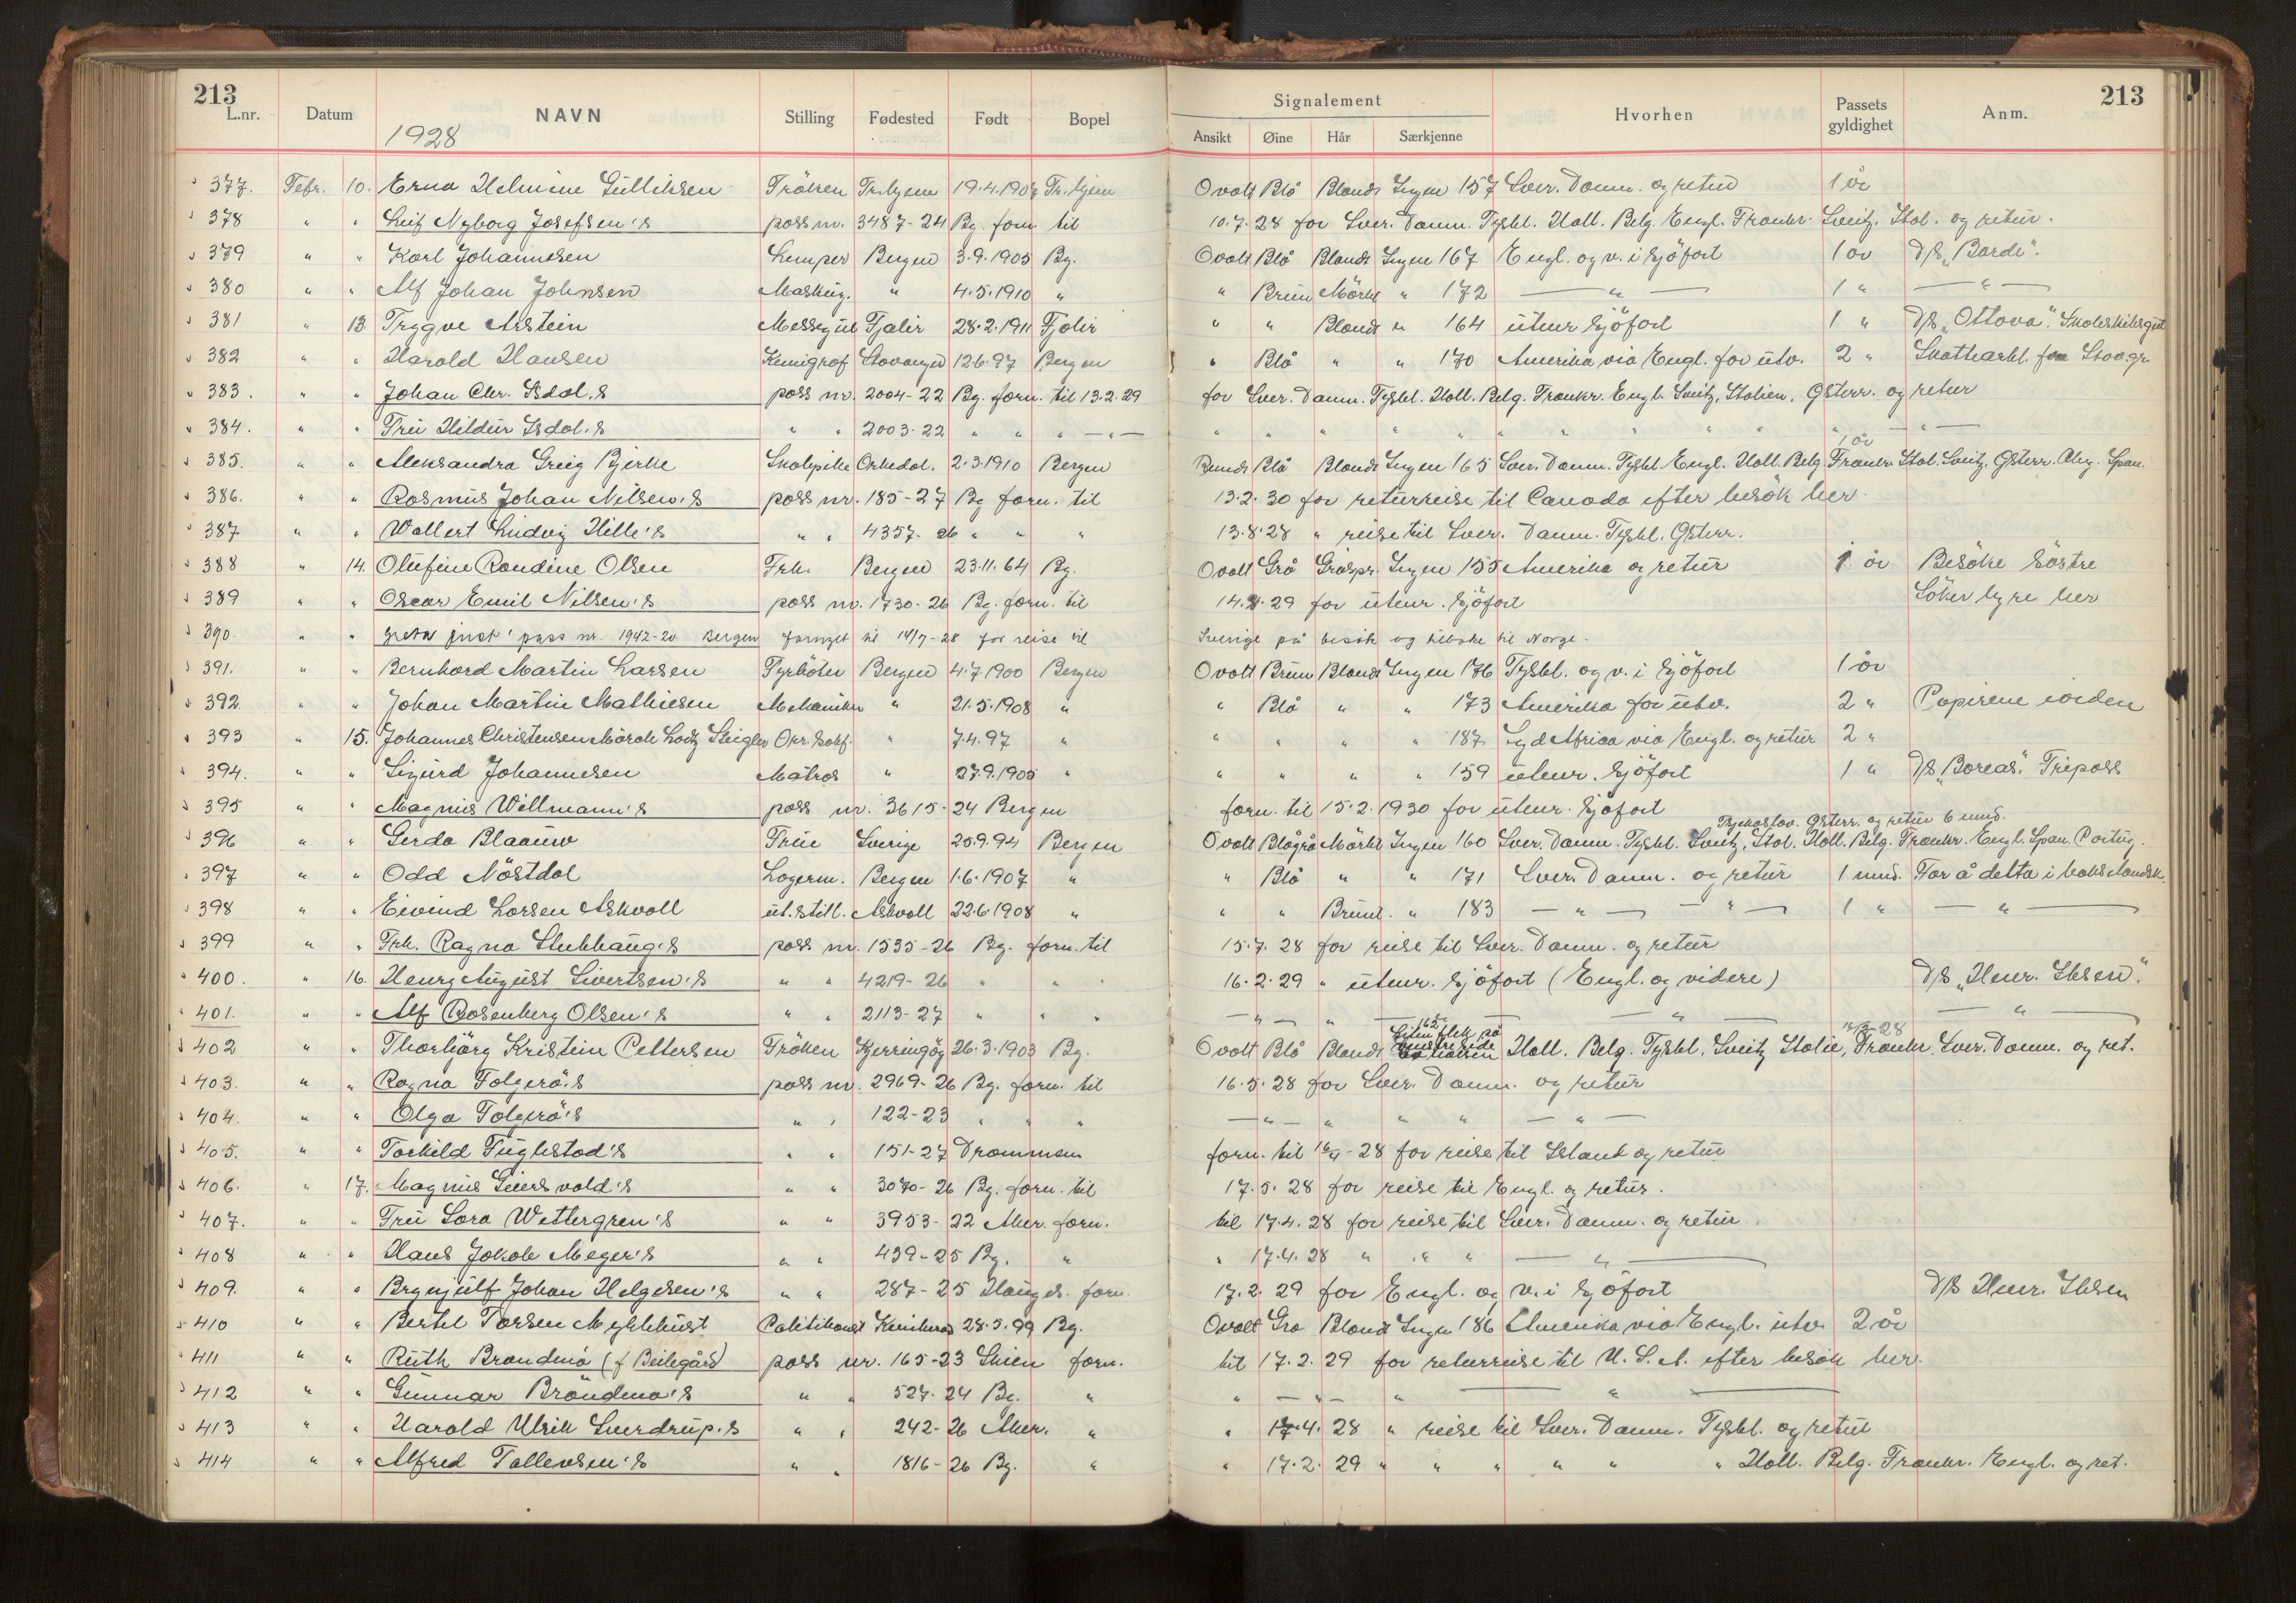 213
L.nr. Datum NAVN Stilling Fødested Født Bopel
1928
213
Signalement Hvorhen Passets gyldighet Anm.
Ansikt Øine Hår Særkjenne
377. Febr. 10. Erna Helmine Gulliksen Fröken Tr.hjem 19.4.1907 Tr.hjem Ovalt Blå Blondt Ingen 157 Sver. Danm. og retur 1 år
378 " " Leif Nyborg Josefsen's pass nr. 3487-24 Bg. forn. til 10.7.28 for Sver. Danm. Tyskl. Holl. Belg. Engl. Frankr. Sveitz. Ital. og retur.
379 " " Karl Johannesen Lemper Bergen 3.9.1905 Bg. Ovalt Blå Blondt Ingen 167 Engl. og v. i sjöfart 1 år D/S "Barde".
380 " " Alf Johan Johnsen Masking. " 4.5.1910 " " Brun Mörkt " 172 — " — 1 " — " —
381 " 13 Trygve Arstein Messegut Fjaler 28.2.1911 Fjaler " " Blondt " 164 utenr. sjöfart 1 " D/S "Ottova". Skoleskibsgut
382 " " Harald Hansen Kemigraf Stavanger 12.6.97 Bergen " Blå " " 170 Amerika via Engl. for utv. 2 " Skattearkl. fra Stav.gr.
383. " " Johan Chr. Isdal's pass nr. 2004-22 Bg. forn. til 13.2.29 for Sver. Danm. Tyskl. Holl. Belg. Frankr. Engl. Sveitz, Italien, Österr. og retur
384. " " Fru Hildur Isdal's " " 2003-22 " " " — " — " " " " " " " " " " " — " —
1 år
385. " " Aleksandra Grieg Bjerke Skolepike Orkedal. 2.3.1910 Bergen Rundt Blå Blondt Ingen 165 Sver. Danm. Tyskl. Engl. Holl. Belg. Frankr. Ital. Sveitz. Österr. Alg. Span.
386. " " Rasmus Johan Nilsen's pass nr. 185-27 Bg forn. til 13.2.30 for returreise til Canada efter besök her.
387 " " Wollert Ludvig Hille's " " 4357-26 " " " 13.8.28 " reise til Sver. Danm. Tyskl. Österr.
388 " 14. Olufine Randine Olsen Frk. Bergen 23.11.64 Bg. Ovalt Grå Gråspr. Ingen 155 Amerika og retur 1 år Besöke söstre
389 " " Oscar Emil Nilsen's pass nr. 1730-26 Bg. forn. til 14.2.29 for utenr. sjöfart Söker hyre her
390. " " Greta Just' pass nr. 1942-20 Bergen fornyet til 14/7-28 for reise til Sverige på besök og tilbake til Norge.
391. " " Bernhard Martin Larsen Fyrböter Bergen 4.7.1900 Bergen Ovalt Brun Blondt Ingen 176 Tyskl. og v. i sjöfart 1 år
392. " " Johan Martin Mathiesen Mekaniker " 21.5.1908 " " Blå " " 173 Amerika for utv. 2 " Papirene iorden
393 " 15. Johannes Christensen Mörch Lodz Steigler Okr. sakf. " 7.4.97 " " " " " 187 Syd Africa via Engl. og retur 2 "
394. " " Sigurd Johannesen Matros " 27.9.1905 " " " " " 159 utenr. sjöfart 1 " D/S "Boreas". Tripass
395 " " Magnus Willmann's pass nr. 3615-24 Bergen forn. til 15.2.1930 for utenr. sjöfart
Tsjekoslov. Österr. og retur 6 mnd.
396 " " Gerda Blaauw Frue Sverige 20.9.94 Bergen Ovalt Blågrå Mörkt Ingen 160 Sver. Danm. Tyskl. Sveitz, Ital. Holl. Belg. Frankr. Engl. Span. Portug.
397 " " Odd Nöstdal Lagerm. Bergen 1.6.1907 " " Blå " " 171 Sver. Danm. og retur 1 mnd. For å delta i boks.landsk.
398 " " Eivind Larsen Askvoll ut.still. Askvoll 22.6.1908 " " " Brunt. " 183 — " — — " — 1 " — " —
399 " " Frk. Ragna Stubhaug's pass nr. 1535-26 Bg. forn. til 15.7.28 for reise til Sver. Danm. og retur
400. " 16. Henry August Sivertsen's " " 4219-26 " " " 16.2.29 " utenr. sjöfart (Engl. og videre) D/S "Henr. Ibsen".
401. " " Alf Rosenberg Olsen's " " 2113-27 " " " — " — " — " — — " —
162 Liten flek på venstre side 16/8-28
402 " " Thorbjörg Kristine Pettersen Fröken Kjerringöy 26.3.1903 Bg. Ovalt Blå Blondt av halsen Holl. Belg. Tyskl. Sveitz Italie, Frankr. Sver. Danm. og ret.
403. " " Ragna Folgerö's pass nr. 2969-26 Bg. forn. til 16.5.28 for Sver. Danm. og retur
404. " " Olga Folgerö's " " 122-23 " " " — " — " " " — " —
405. " " Torkild Fuglestad's " " 151-27 Drammen forn. til 16/9-28 for reise til Island og retur
406. " 17. Magnus Giersvold's " " 3070-26 Bg. forn. til 17.5.28 for reise til Engl. og retur.
407. " " Fru Lara Wettergren's " " 3953-22 Aker. forn. til 17.4.28 for reise til Sver. Danm. og retur
408 " " Hans Jakob Meyer's " " 439-25 Bg. " " 17.4.28 " " " — " —
409. " " Brynjulf Johan Helgesen's " " 287-25 Hauges. forn. 17.2.29 for Engl. og v. i sjöfart D/S Henr. Ibsen
410 " " Bertel Torsen Myklebust Politikonst Kvinherad 28.5.99 Bg. Ovalt Grå Blondt Ingen 186 Amerika via Engl. utv. 2 år
411 " " Ruth Brandmo (f. Beilegård) pass nr. 165-23 Skien forn. til 17.2.29 for returreise til U.S.A. efter besök her.
412 " " Gunnar Brändmo's " " 527-24 Bg. " " — " — " — " —
413 " " Harald Ulrik Sverdrup's " " 242-26 Aker. " " 17.4.28 " reise til Sver. Danm. Tyskl. og retur
414 " " Alfred Tollevsen's " " 1816-26 Bg. " " 17.2.29 " " " " " " Holl. Belg. Frankr. Engl. og ret.